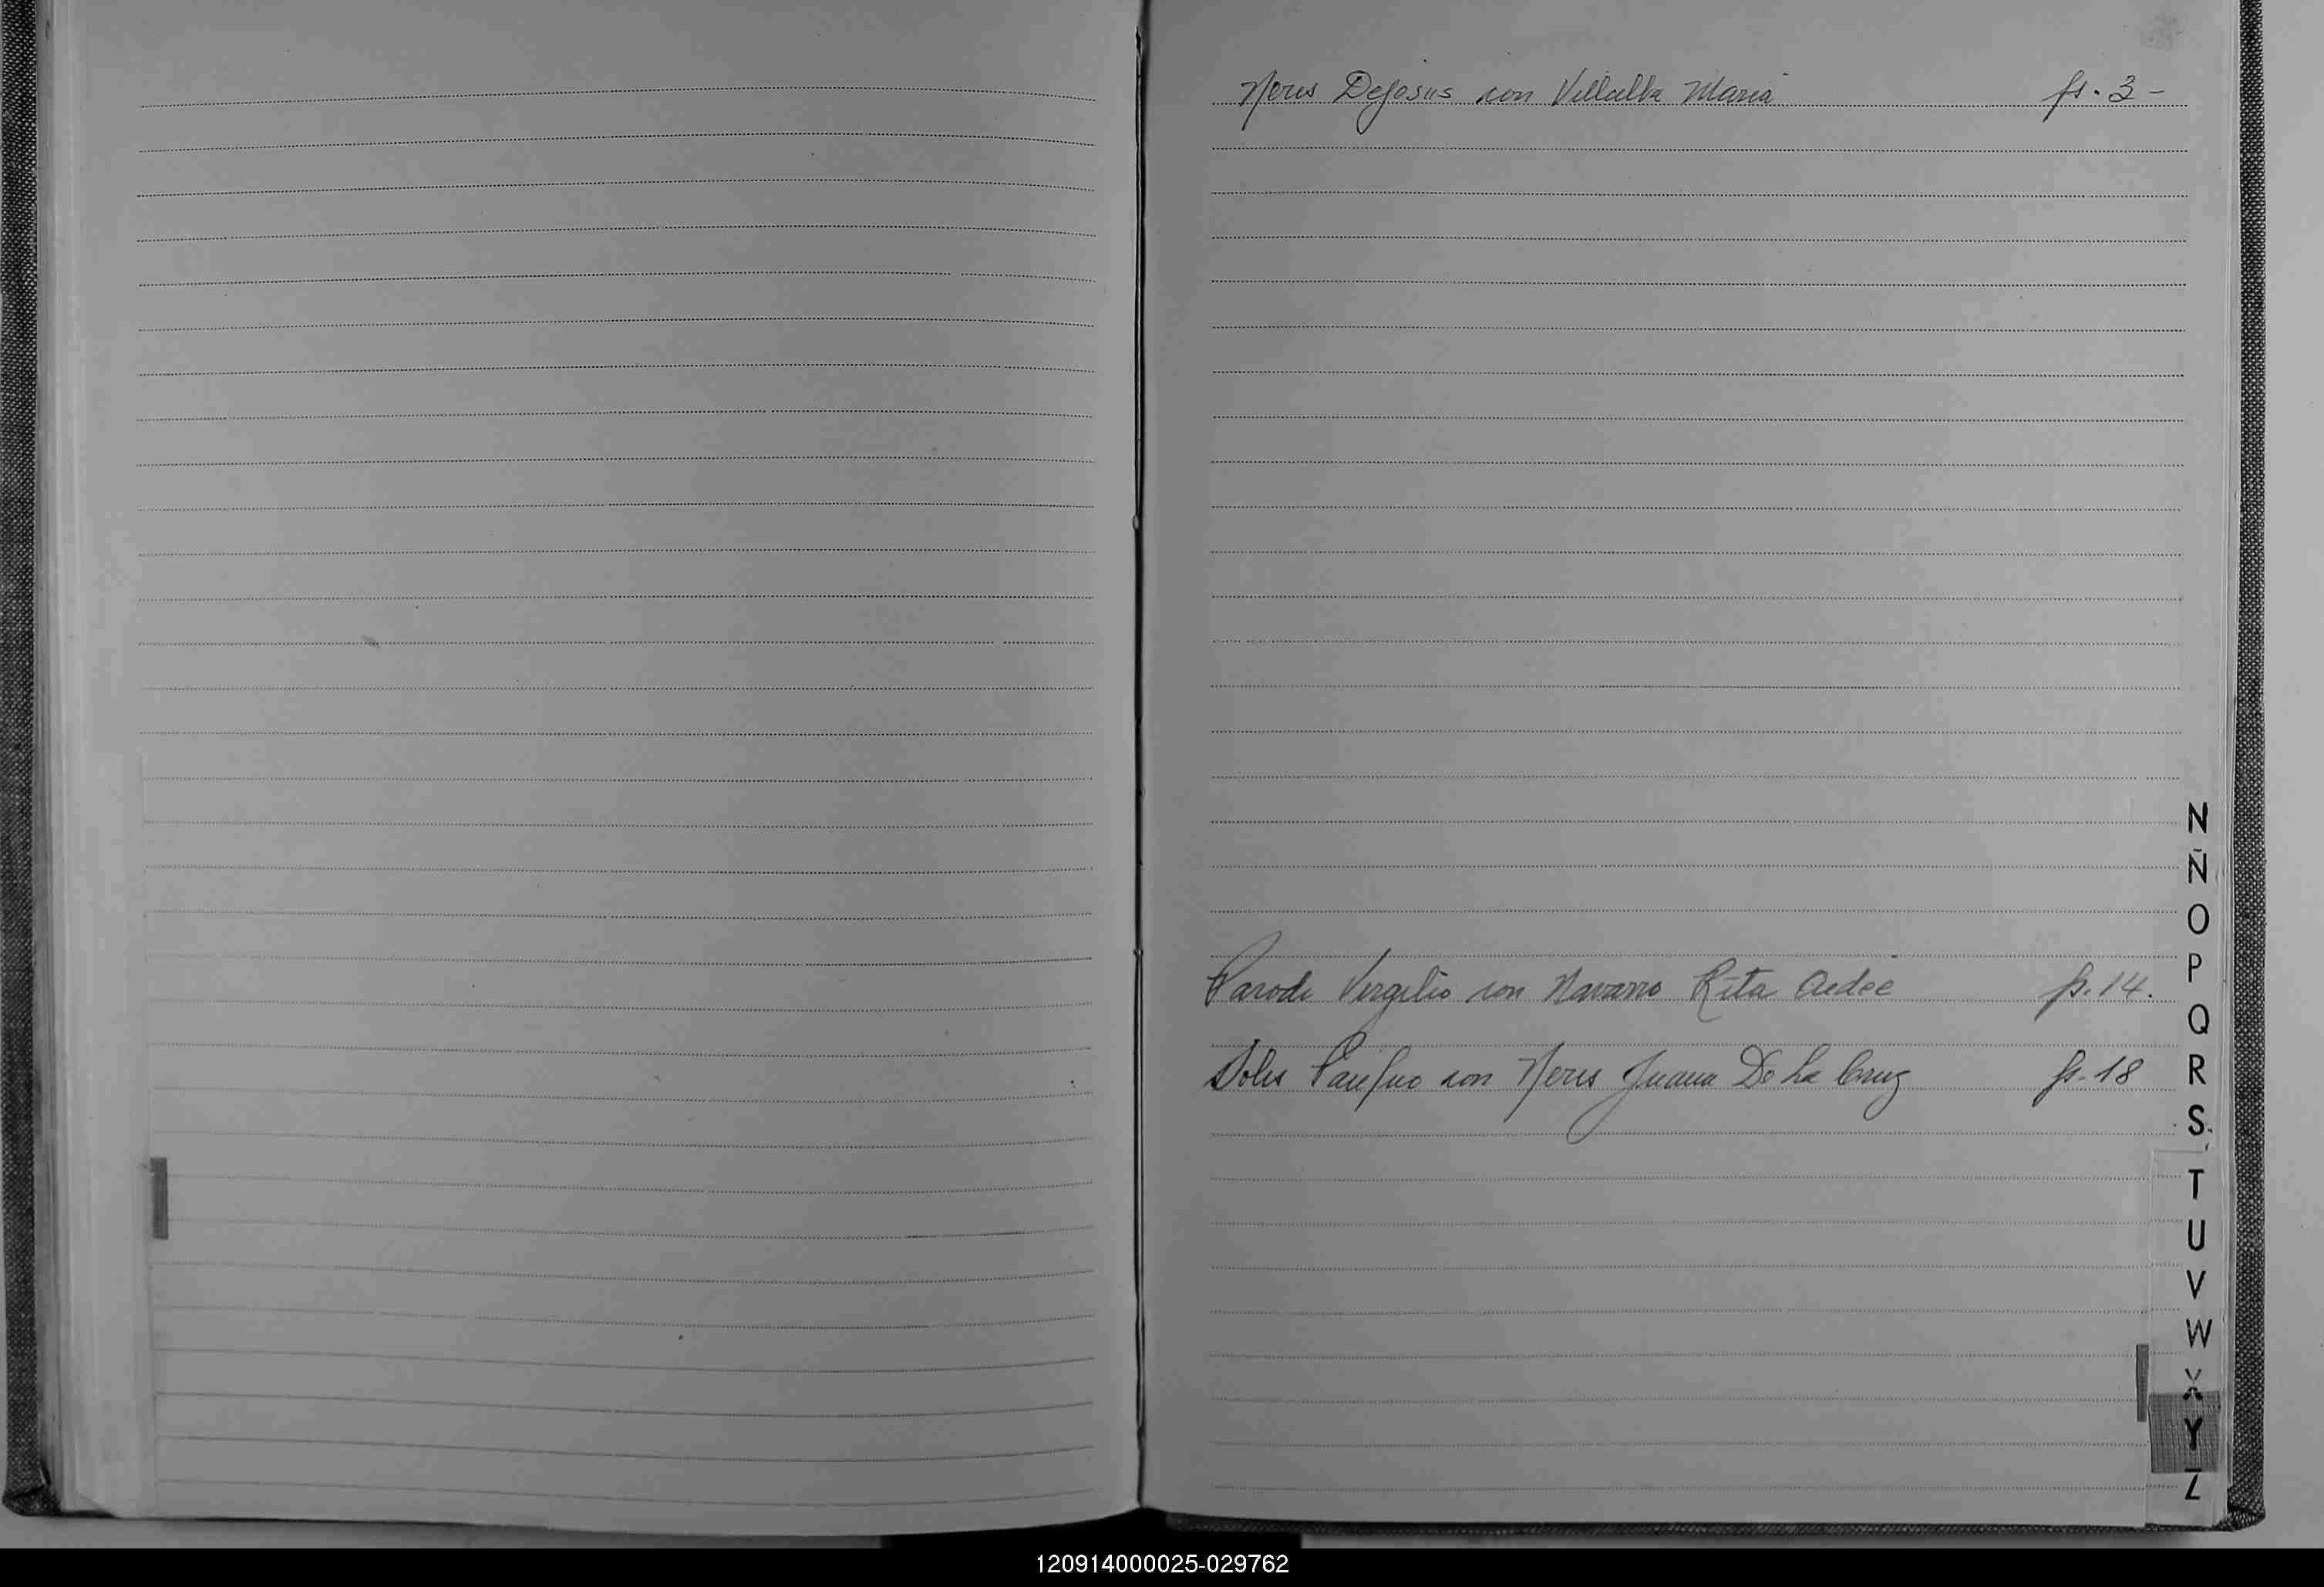 Neris Dejesus con Villalba Maria fs. 3 -
Parodi Vergilio con Navarro Rita Aedee fs. 14.
Solis con Neris Juana De La Cruz fs. 18
N
Ñ
O
P
Q
R
S
T
U
V
W
X
Y
Z
120914000025-029762